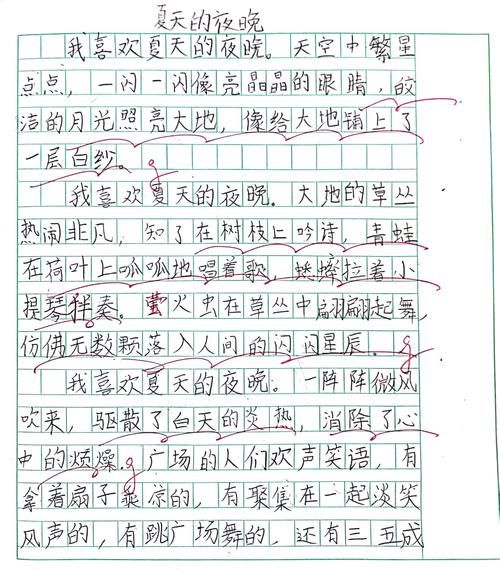 夏天的夜晚
我喜欢夏天的夜晚。天空中繁星
点点，一闪一闪像亮晶晶的眼睛，皎
洁的月光照亮大地，像给大地铺上了
一层白纱。
我喜欢夏天的夜晚。大地的草丛
热闹非凡，知了在树枝上吟诗，青蛙
在荷叶上呱呱地唱着歌，蟋蟀拉着小
提琴伴奏。萤火虫在草丛中翩翩起舞，
仿佛无数颗落入人间的闪闪星辰。
我喜欢夏天的夜晚。一阵阵微风
吹来，驱散了白天的炎热，消除了心
中的烦燥。广场的人们欢声笑语，有
拿着扇子乘凉的，有聚集在一起谈笑
风声的，有跳广场舞的，还有三五成